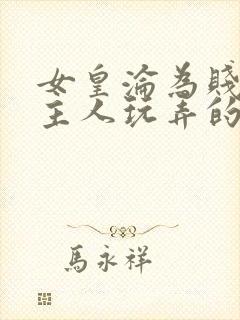 女皇淪為賤
主人玩弄的
馬永祥